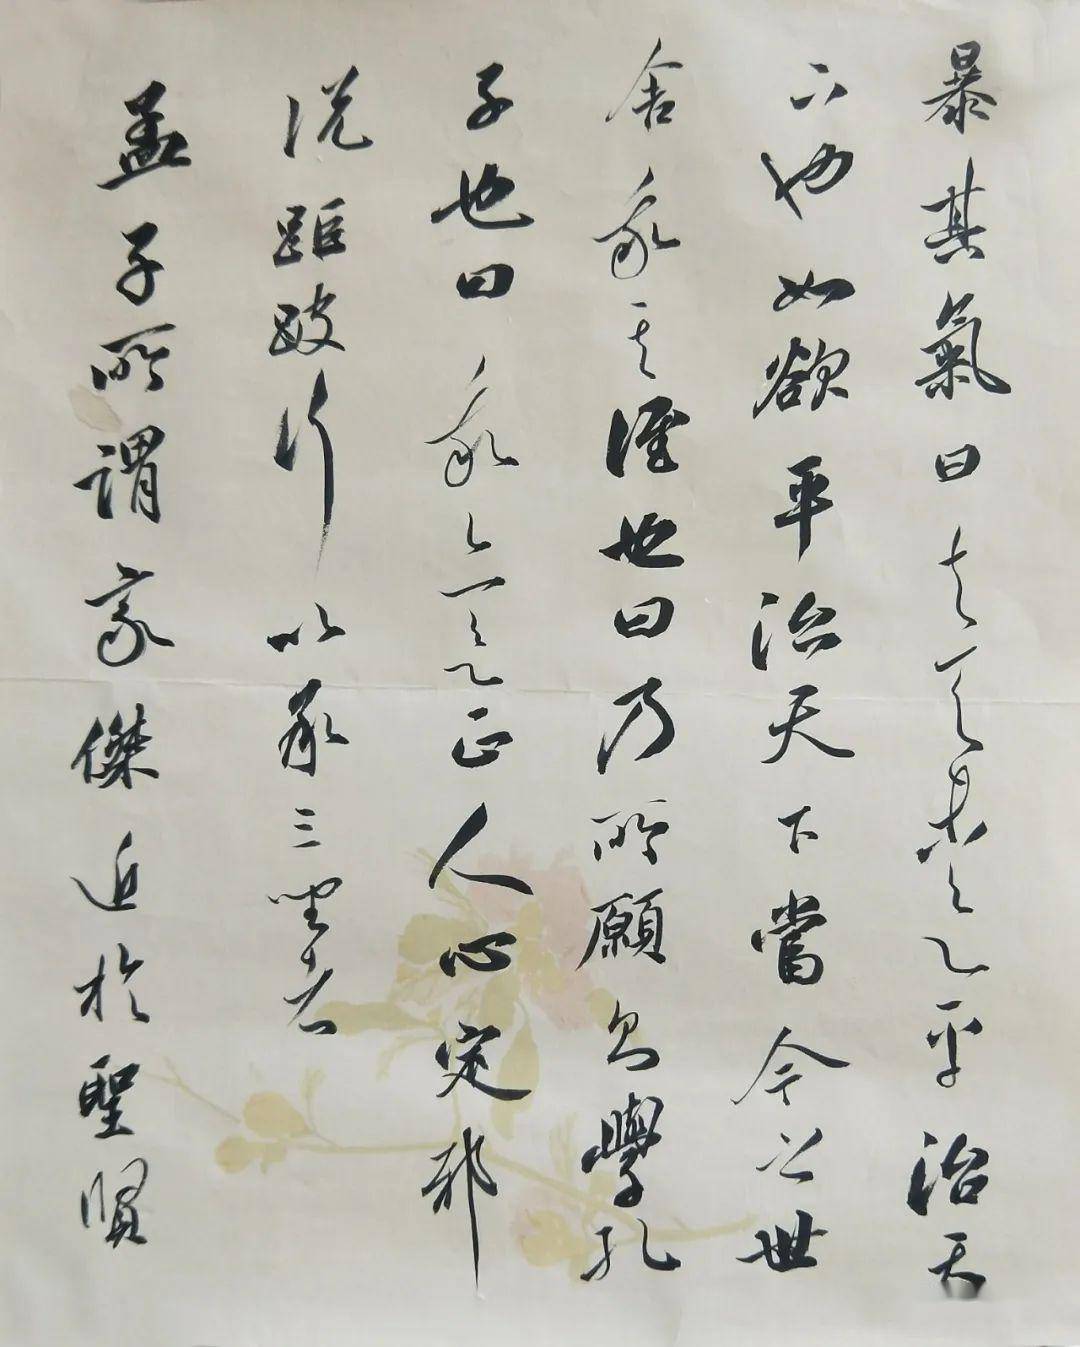 暴其氣曰夫天未欲平治天
下也如欲平治天下當今之世
舍我其誰也曰乃所願則學孔
子也曰我亦欲正人心定邪
說距跛行以承三聖者
孟子所謂豪傑近於聖賢